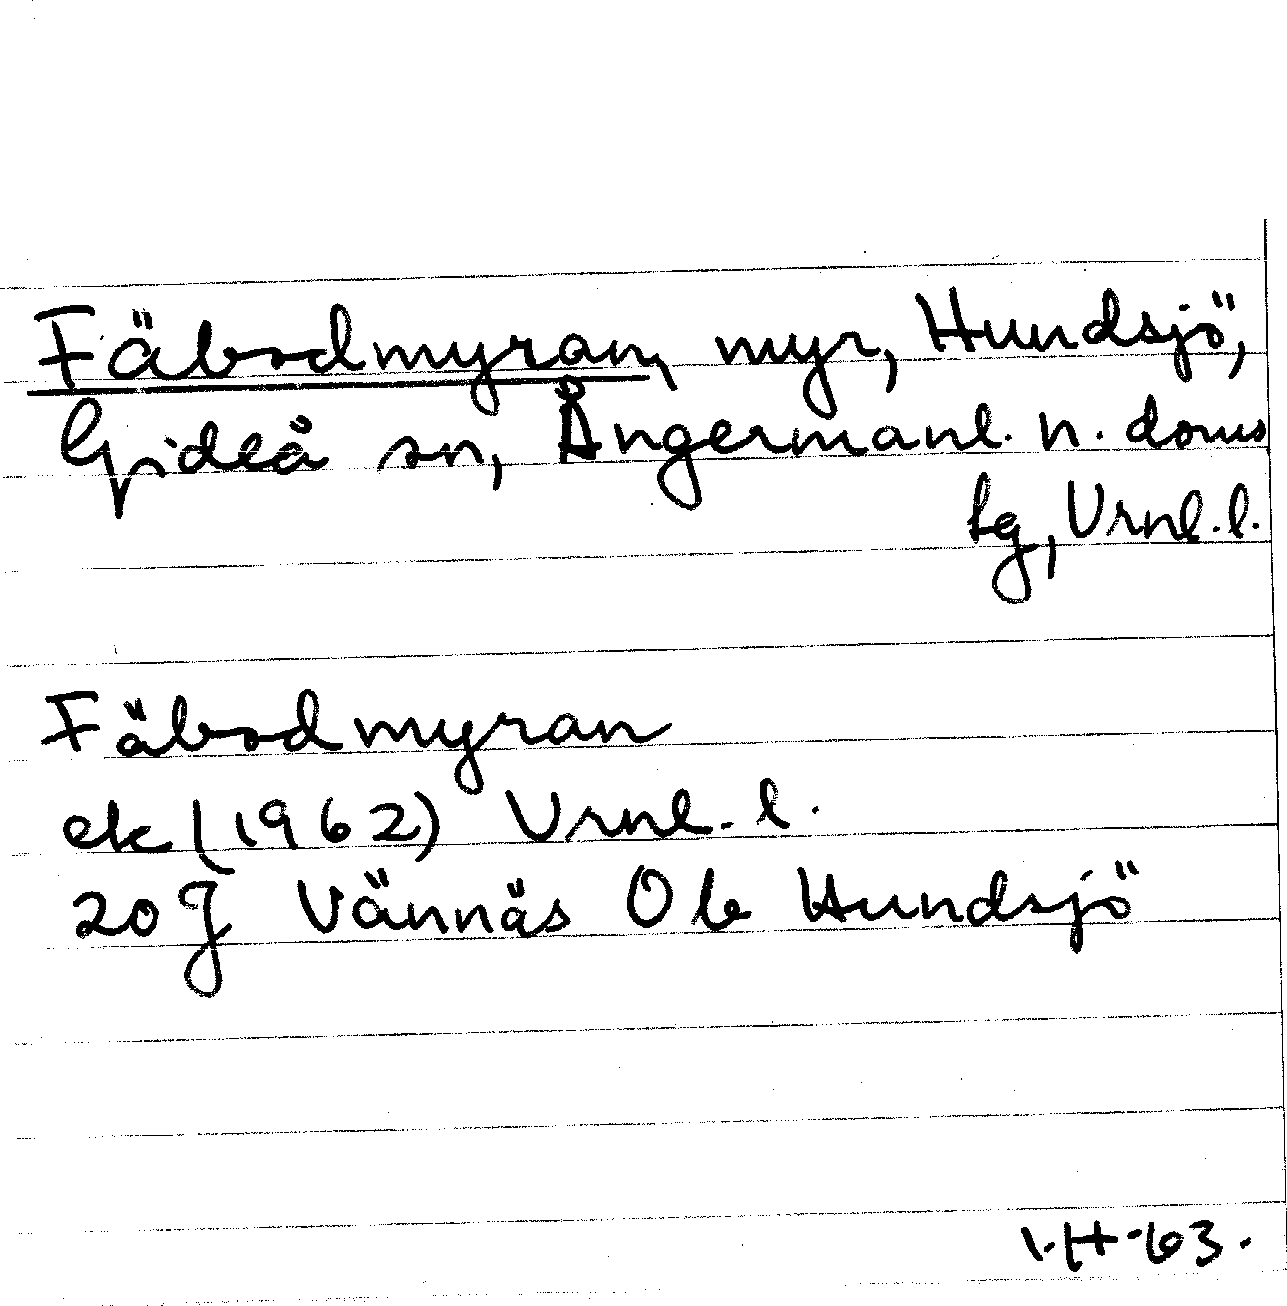 Fäbodmyran, myr, Hundsjö,
Gideå sn, Ångermanl. n. doms
lg, Vrnl. l.
Fäbodmyran
ek (1962) Vrnl. l.
20 J Vännäs Ob Hundsjö
I.H-63.